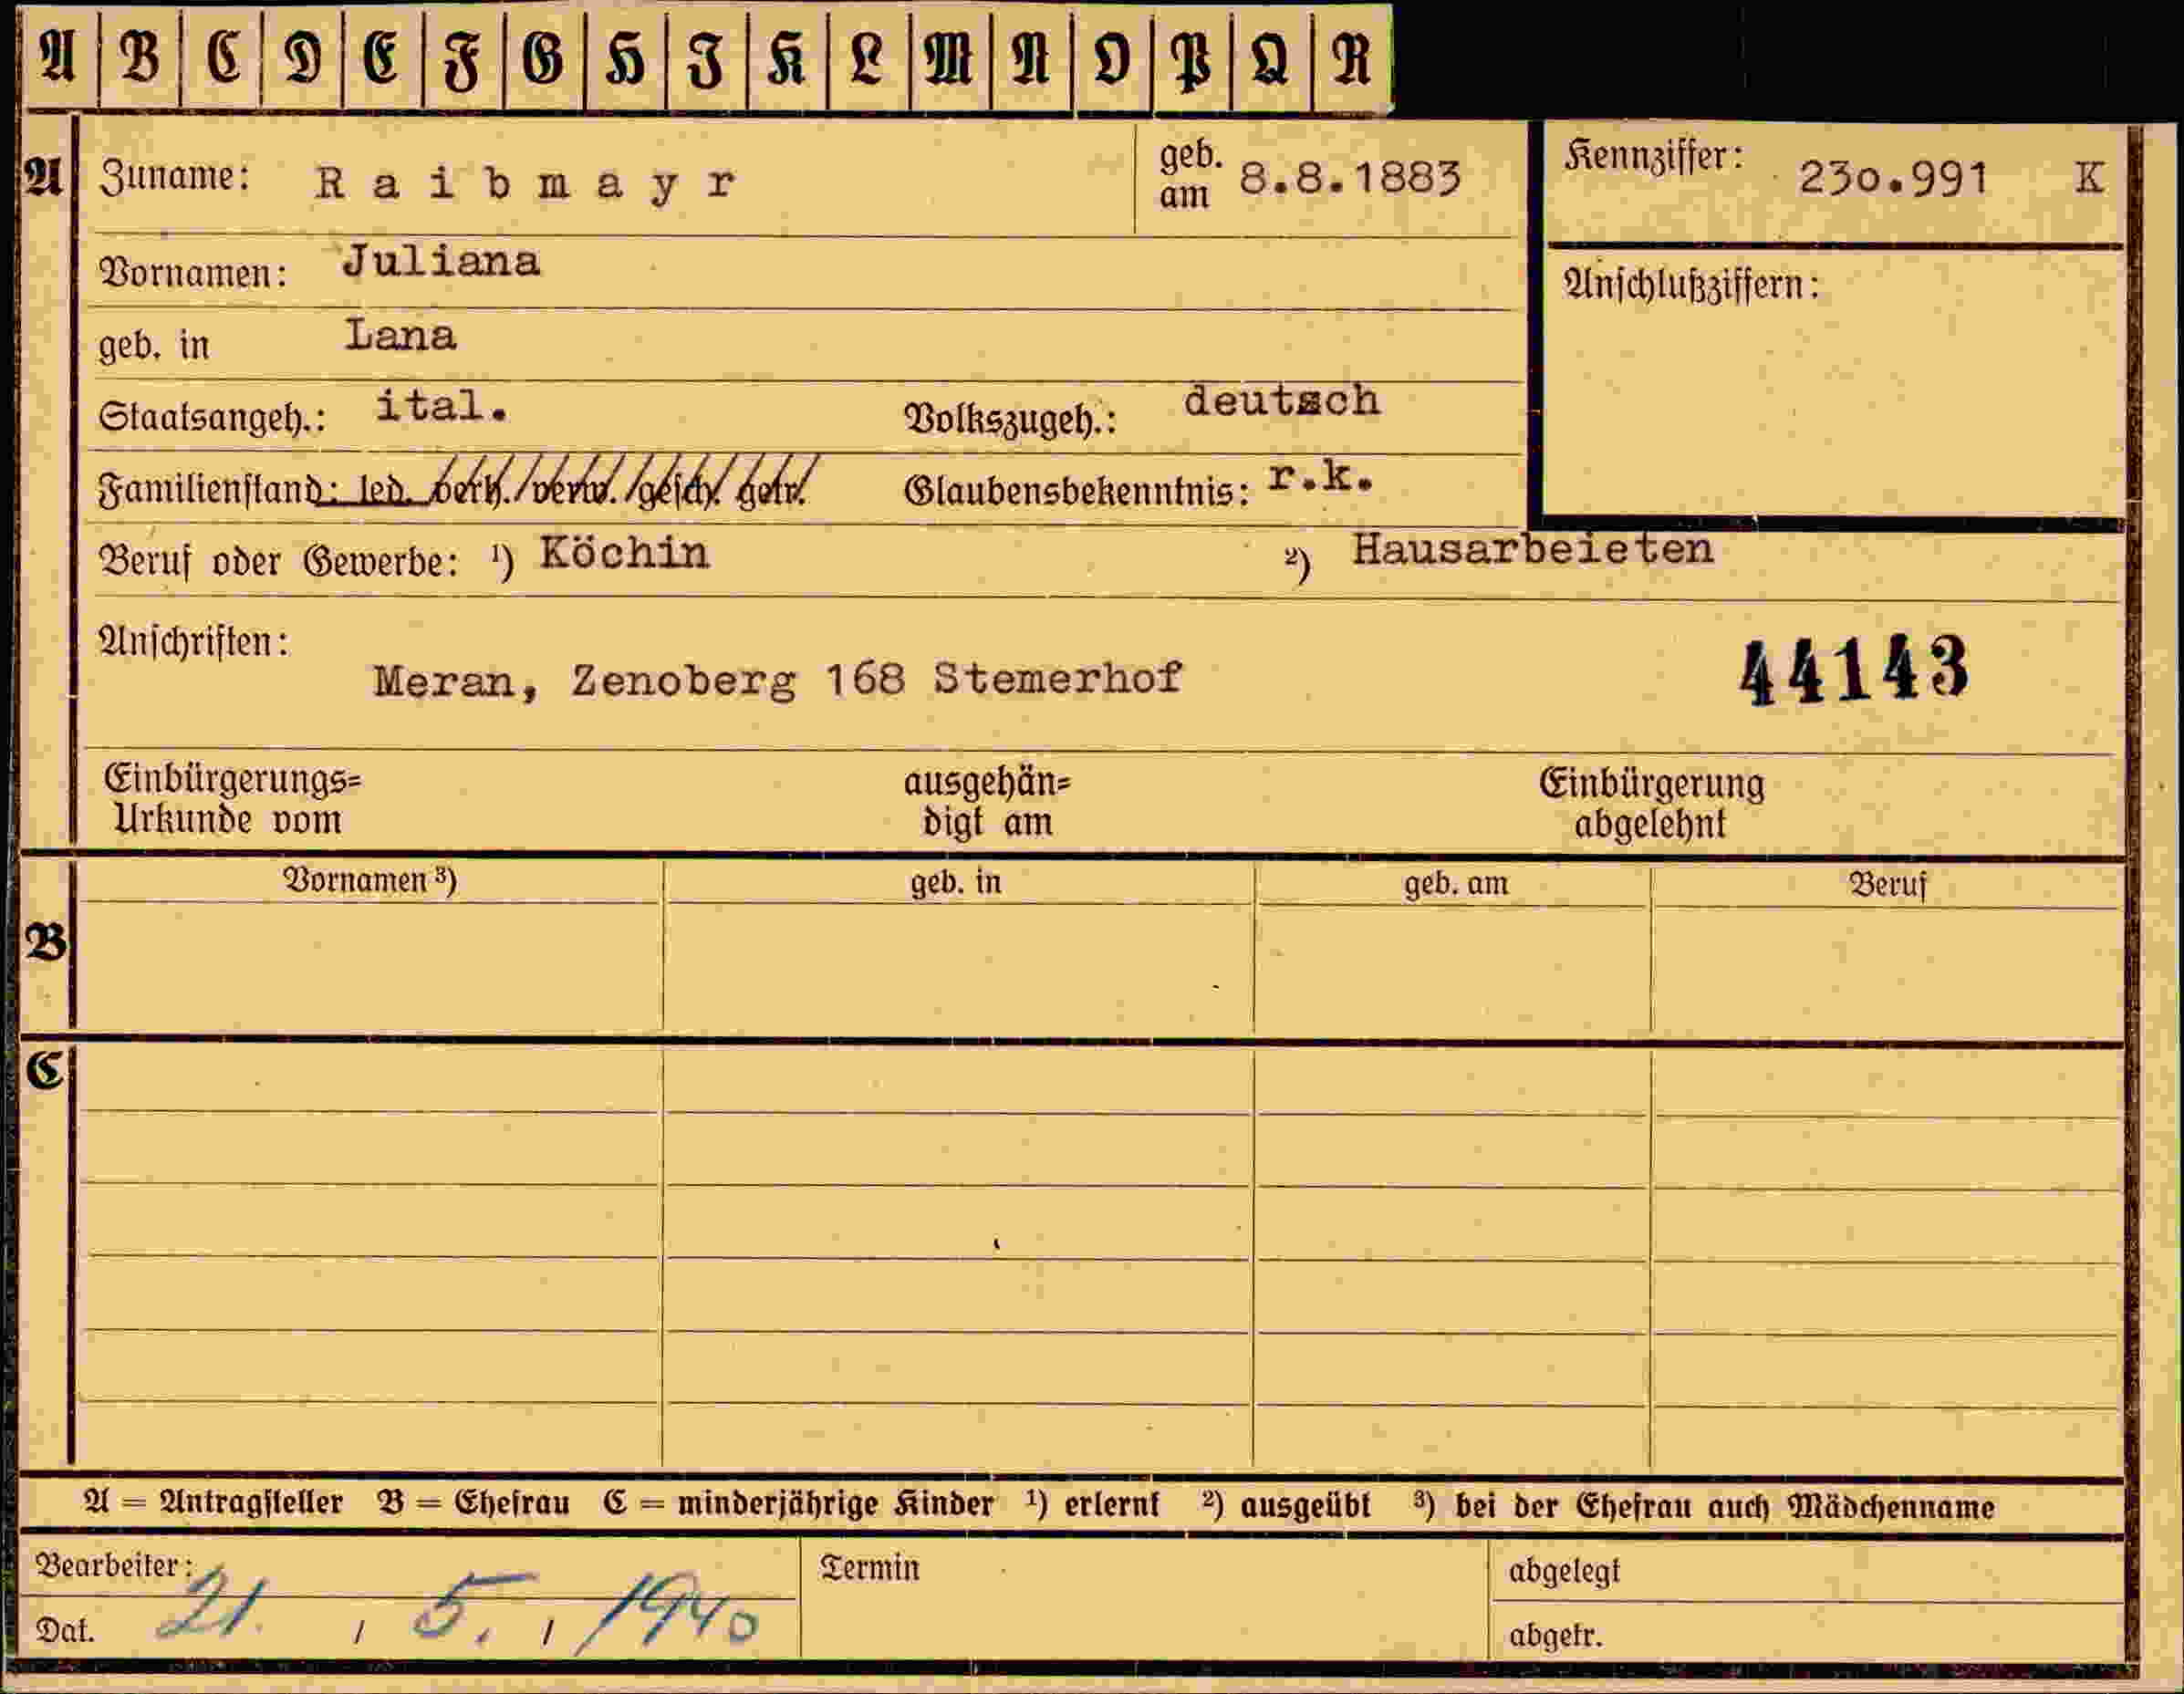 A B C D E F G H J K L M N O P Q R
A Zuname: Raibmayr geb. am 8.8.1883 Kennziffer: 23o.991 K
Vornamen: Juliana Anschlußziffern:
geb. in Lana
Staatsangeh.: ital. Volkszugeh.: deutsch
Familienstand: led. verh. / verw. / gesch. getr. Glaubensbekenntnis: r.k.
Beruf oder Gewerbe: ¹) Köchin ²) Hausarbeieten
Anschriften:
Meran, Zenoberg 168 Stemerhof 44143
Einbürgerungs= ausgehän= Einbürgerung
Urkunde vom digt am abgelehnt
Vornamen ³) geb. in geb. am Beruf
B
C
A = Antragsteller B = Ehefrau C = minderjährige Kinder ¹) erlernt ²) ausgeübt ³) bei der Ehefrau auch Mädchenname
Bearbeiter: Termin abgelegt
Dat. 21. / 5. / 1940 abgetr.